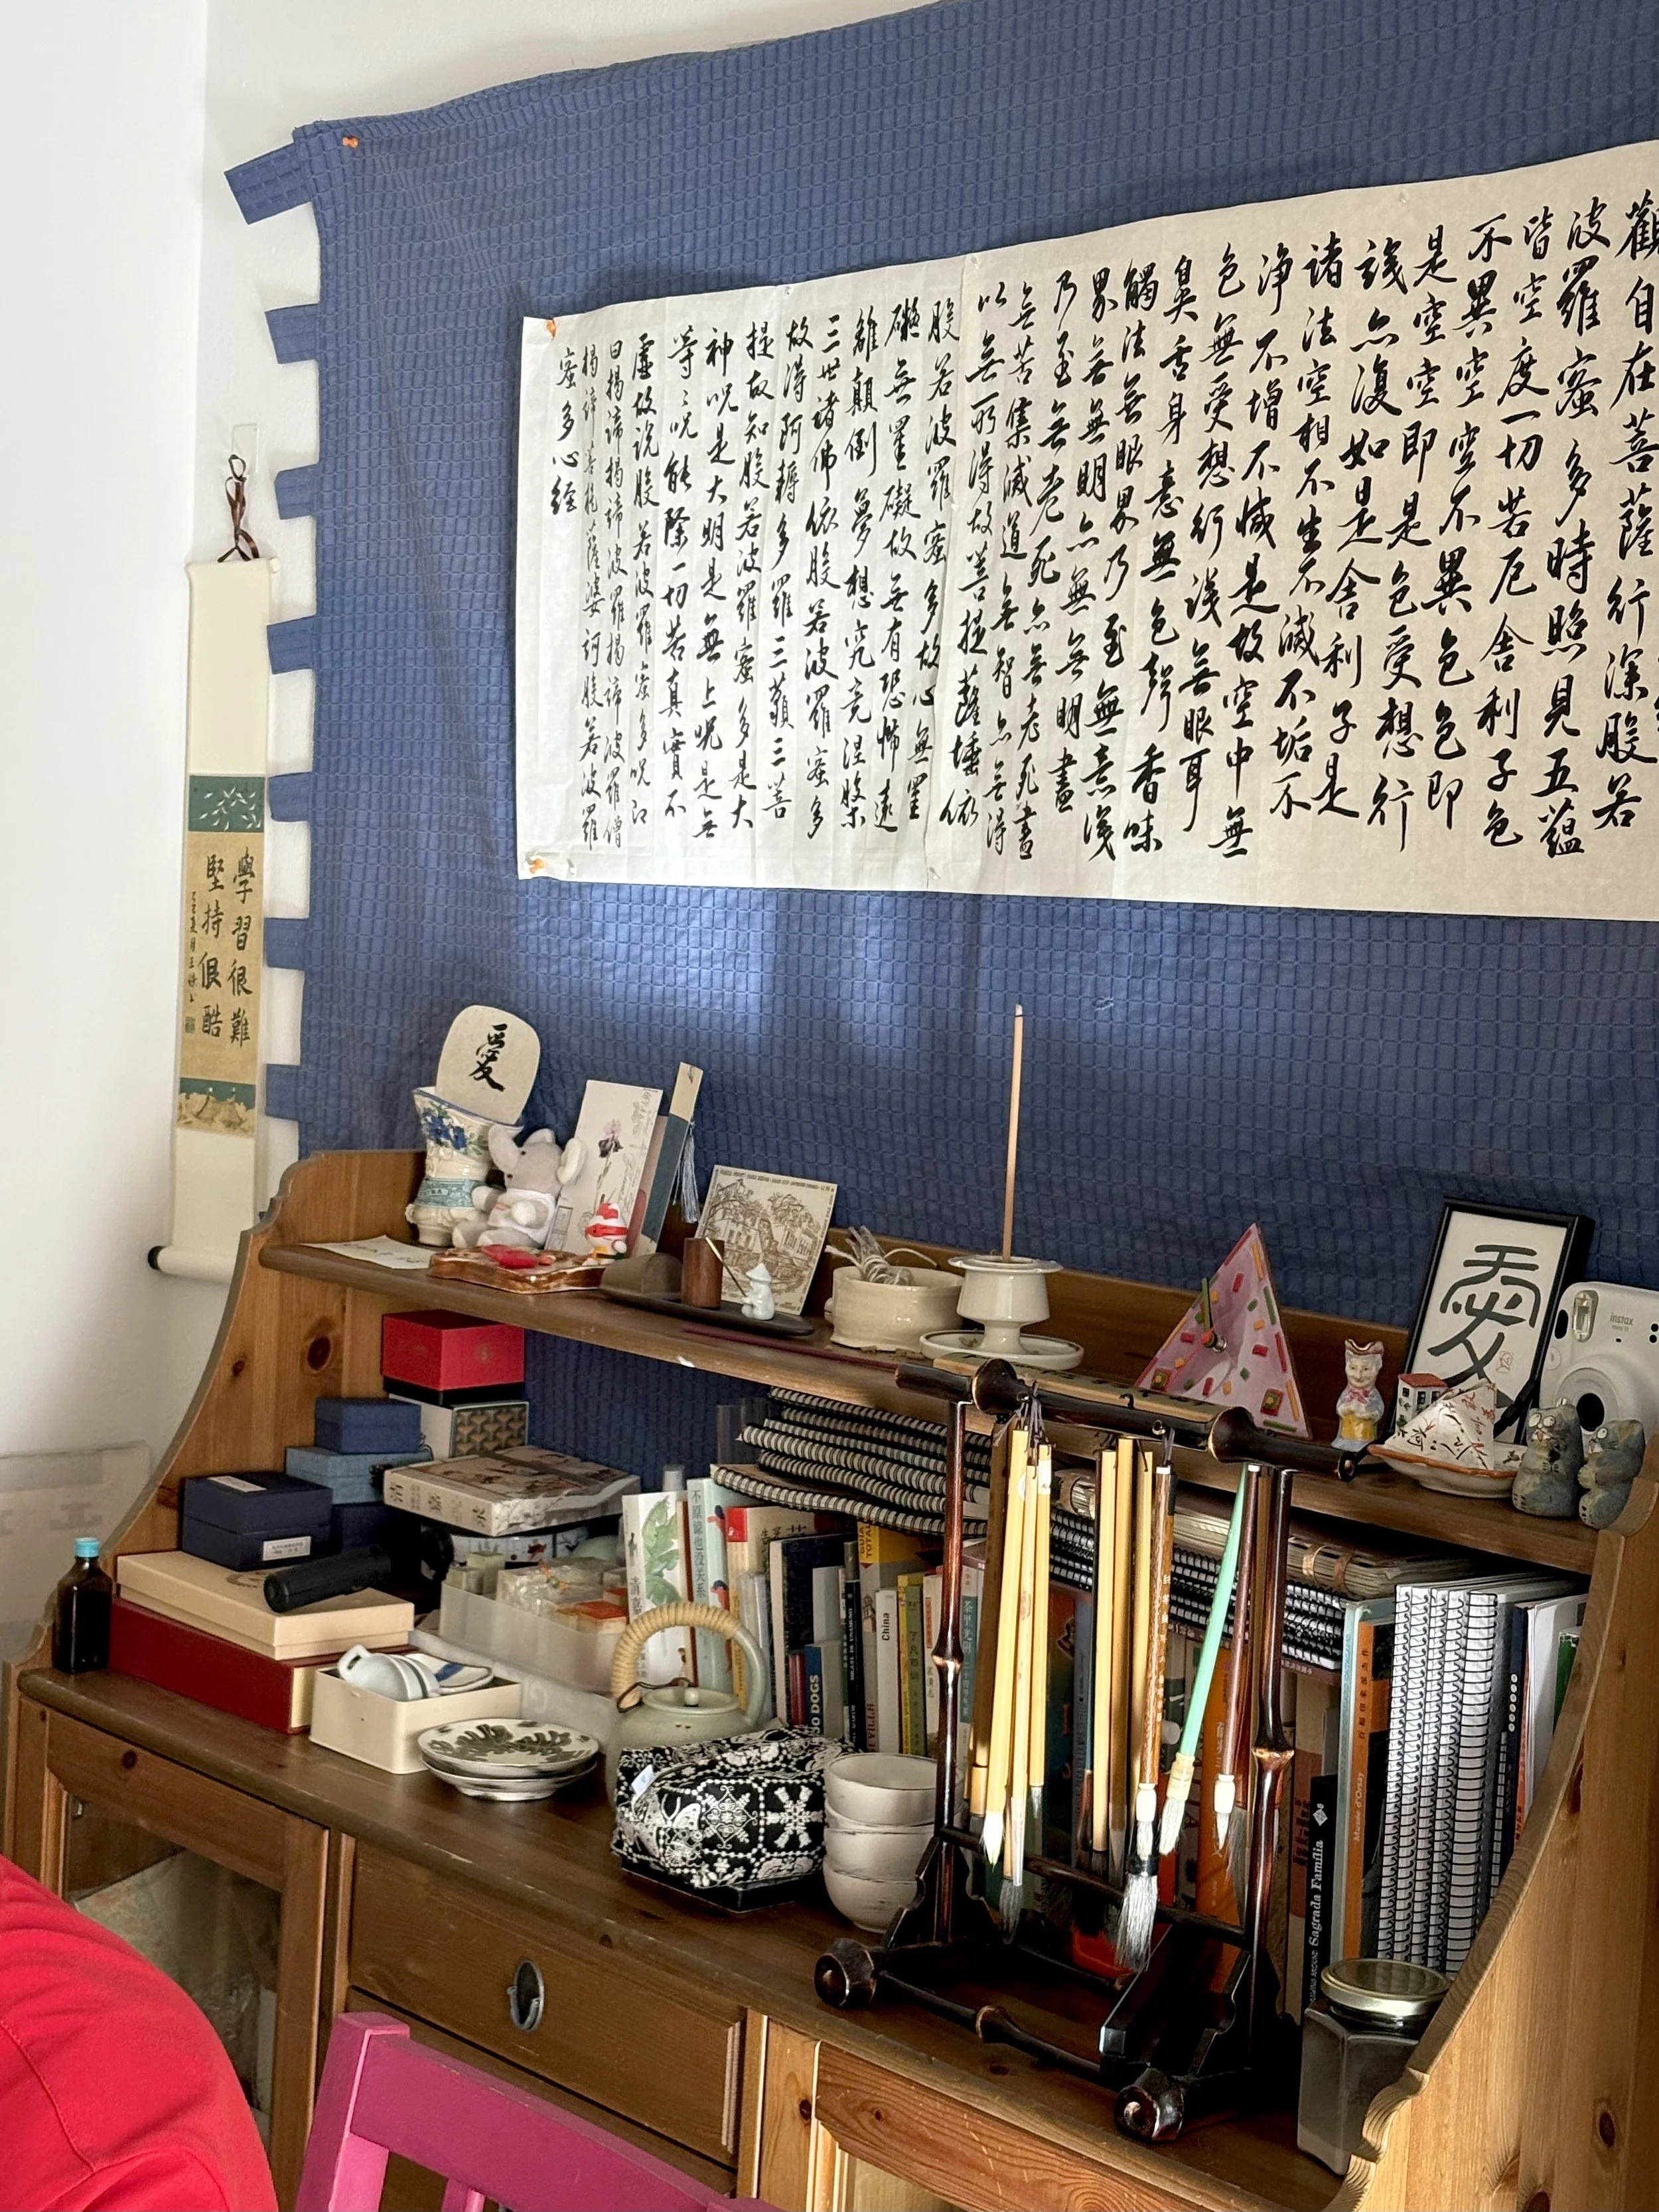 觀自在菩薩行深般若
波羅蜜多時照見五蘊
皆空度一切苦厄舍利子色
不異空空不異色色即
是空空即是色受想行
識亦復如是舍利子是
諸法空相不生不滅不垢不
淨不增不減是故空中無
色無受想行識無眼耳
鼻舌身意無色聲香味
觸法無眼界乃至無意識
界無無明亦無無明盡
乃至無老死亦無老死盡
無苦集滅道無智亦無得
以無所得故菩提薩埵依
般若波羅蜜多故心無罣
礙無罣礙故無有恐怖遠
離顛倒夢想究竟涅槃
三世諸佛依般若波羅蜜多
故得阿耨多羅三藐三菩
提故知般若波羅蜜多是大
神呪是大明是無上呪是無
等々呪能除一切苦真實不
虛故說般若波羅蜜多呪即
曰揭諦揭諦波羅揭諦波羅僧
揭諦菩提薩婆訶般若波羅
蜜多心經
學習很難
堅持很酷
愛
愛
instax
不原谅也没关系
China
DOGS
Sagrada Família
Musée d'Orsay